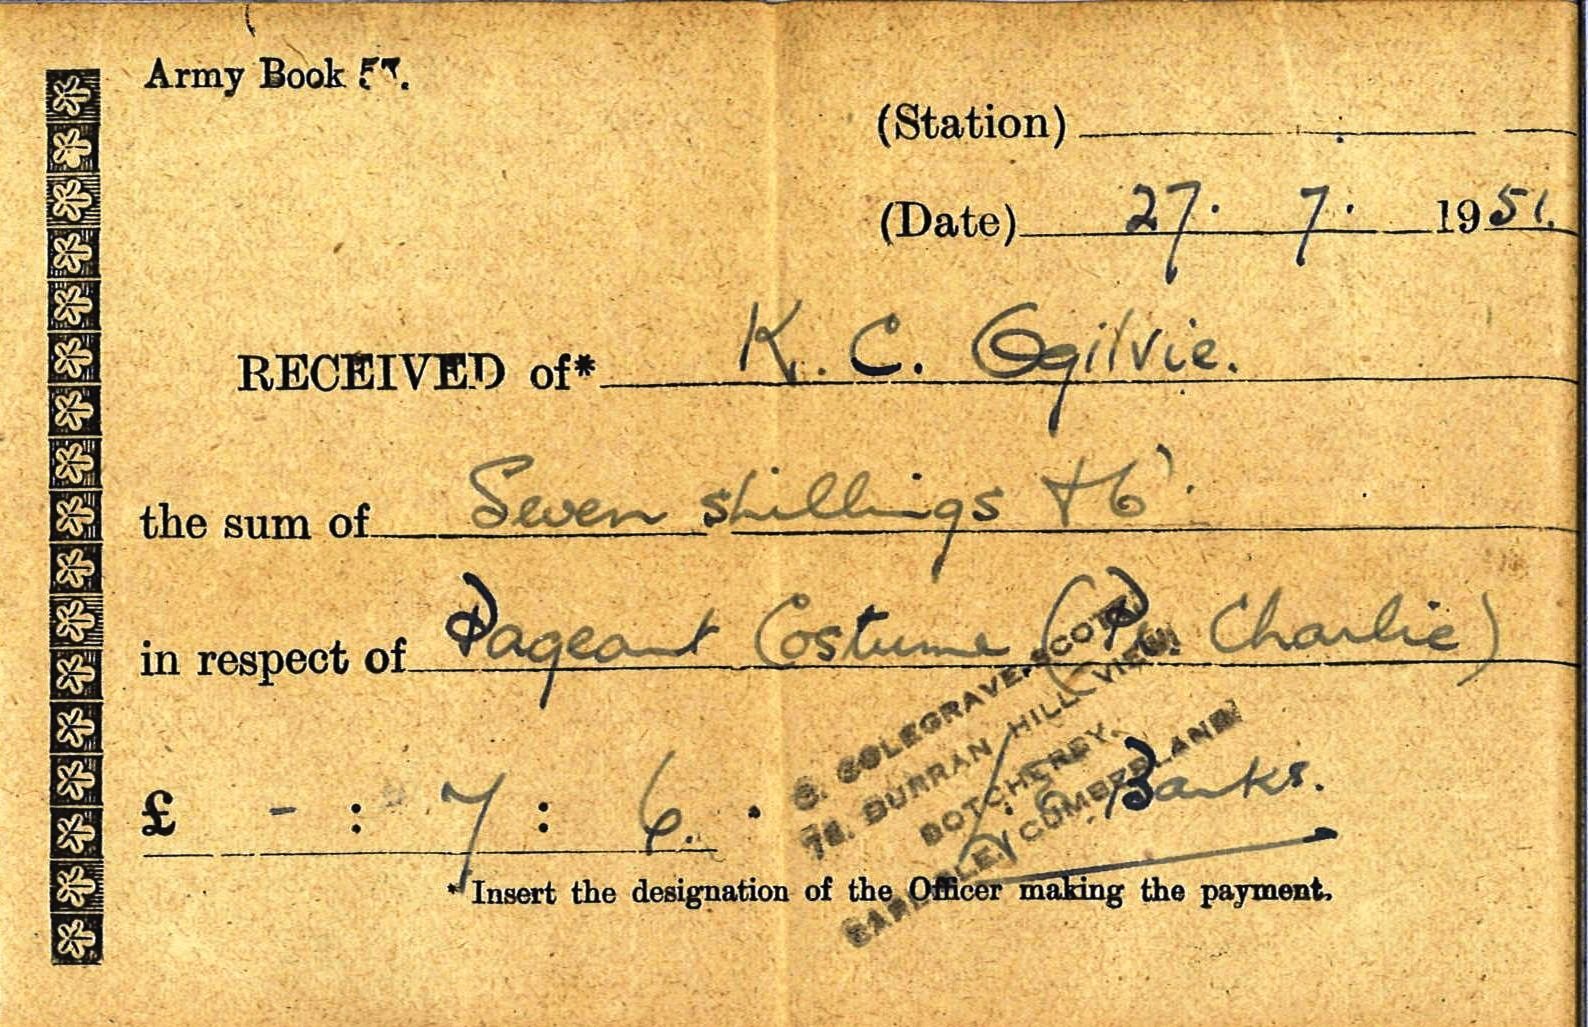 Army Book 57.
(Station)
(Date) 27. 7. 1951.
RECEIVED of* K. C. Ogilvie.
the sum of Seven shillings + 6
in respect of Pageant Costume (P. Charlie)
£ - : 7 : 6. Banks.
COLEGRAVE-SCOTT,
78. DURRAN HILL VIEW,
BOTCHERBY,
CARLISLE, CUMBERLAND
* Insert the designation of the Officer making the payment.